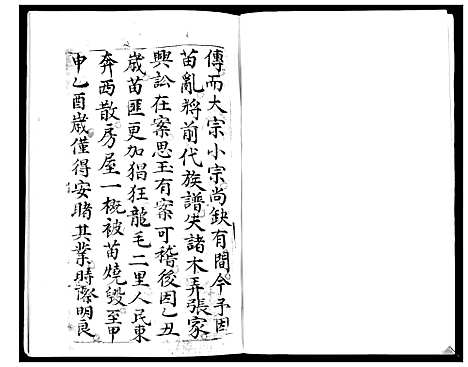 傳而大宗小宗尚缺有間今予因
苗亂將前代族譜失諸木弄張家
興訟在案思王有案可稽後因乙丑
歲苗匪更加猖狂龍毛二里人民東
奔西散房屋一概被苗燒毀至甲
申乙酉歲僅得安睹其業時際明良